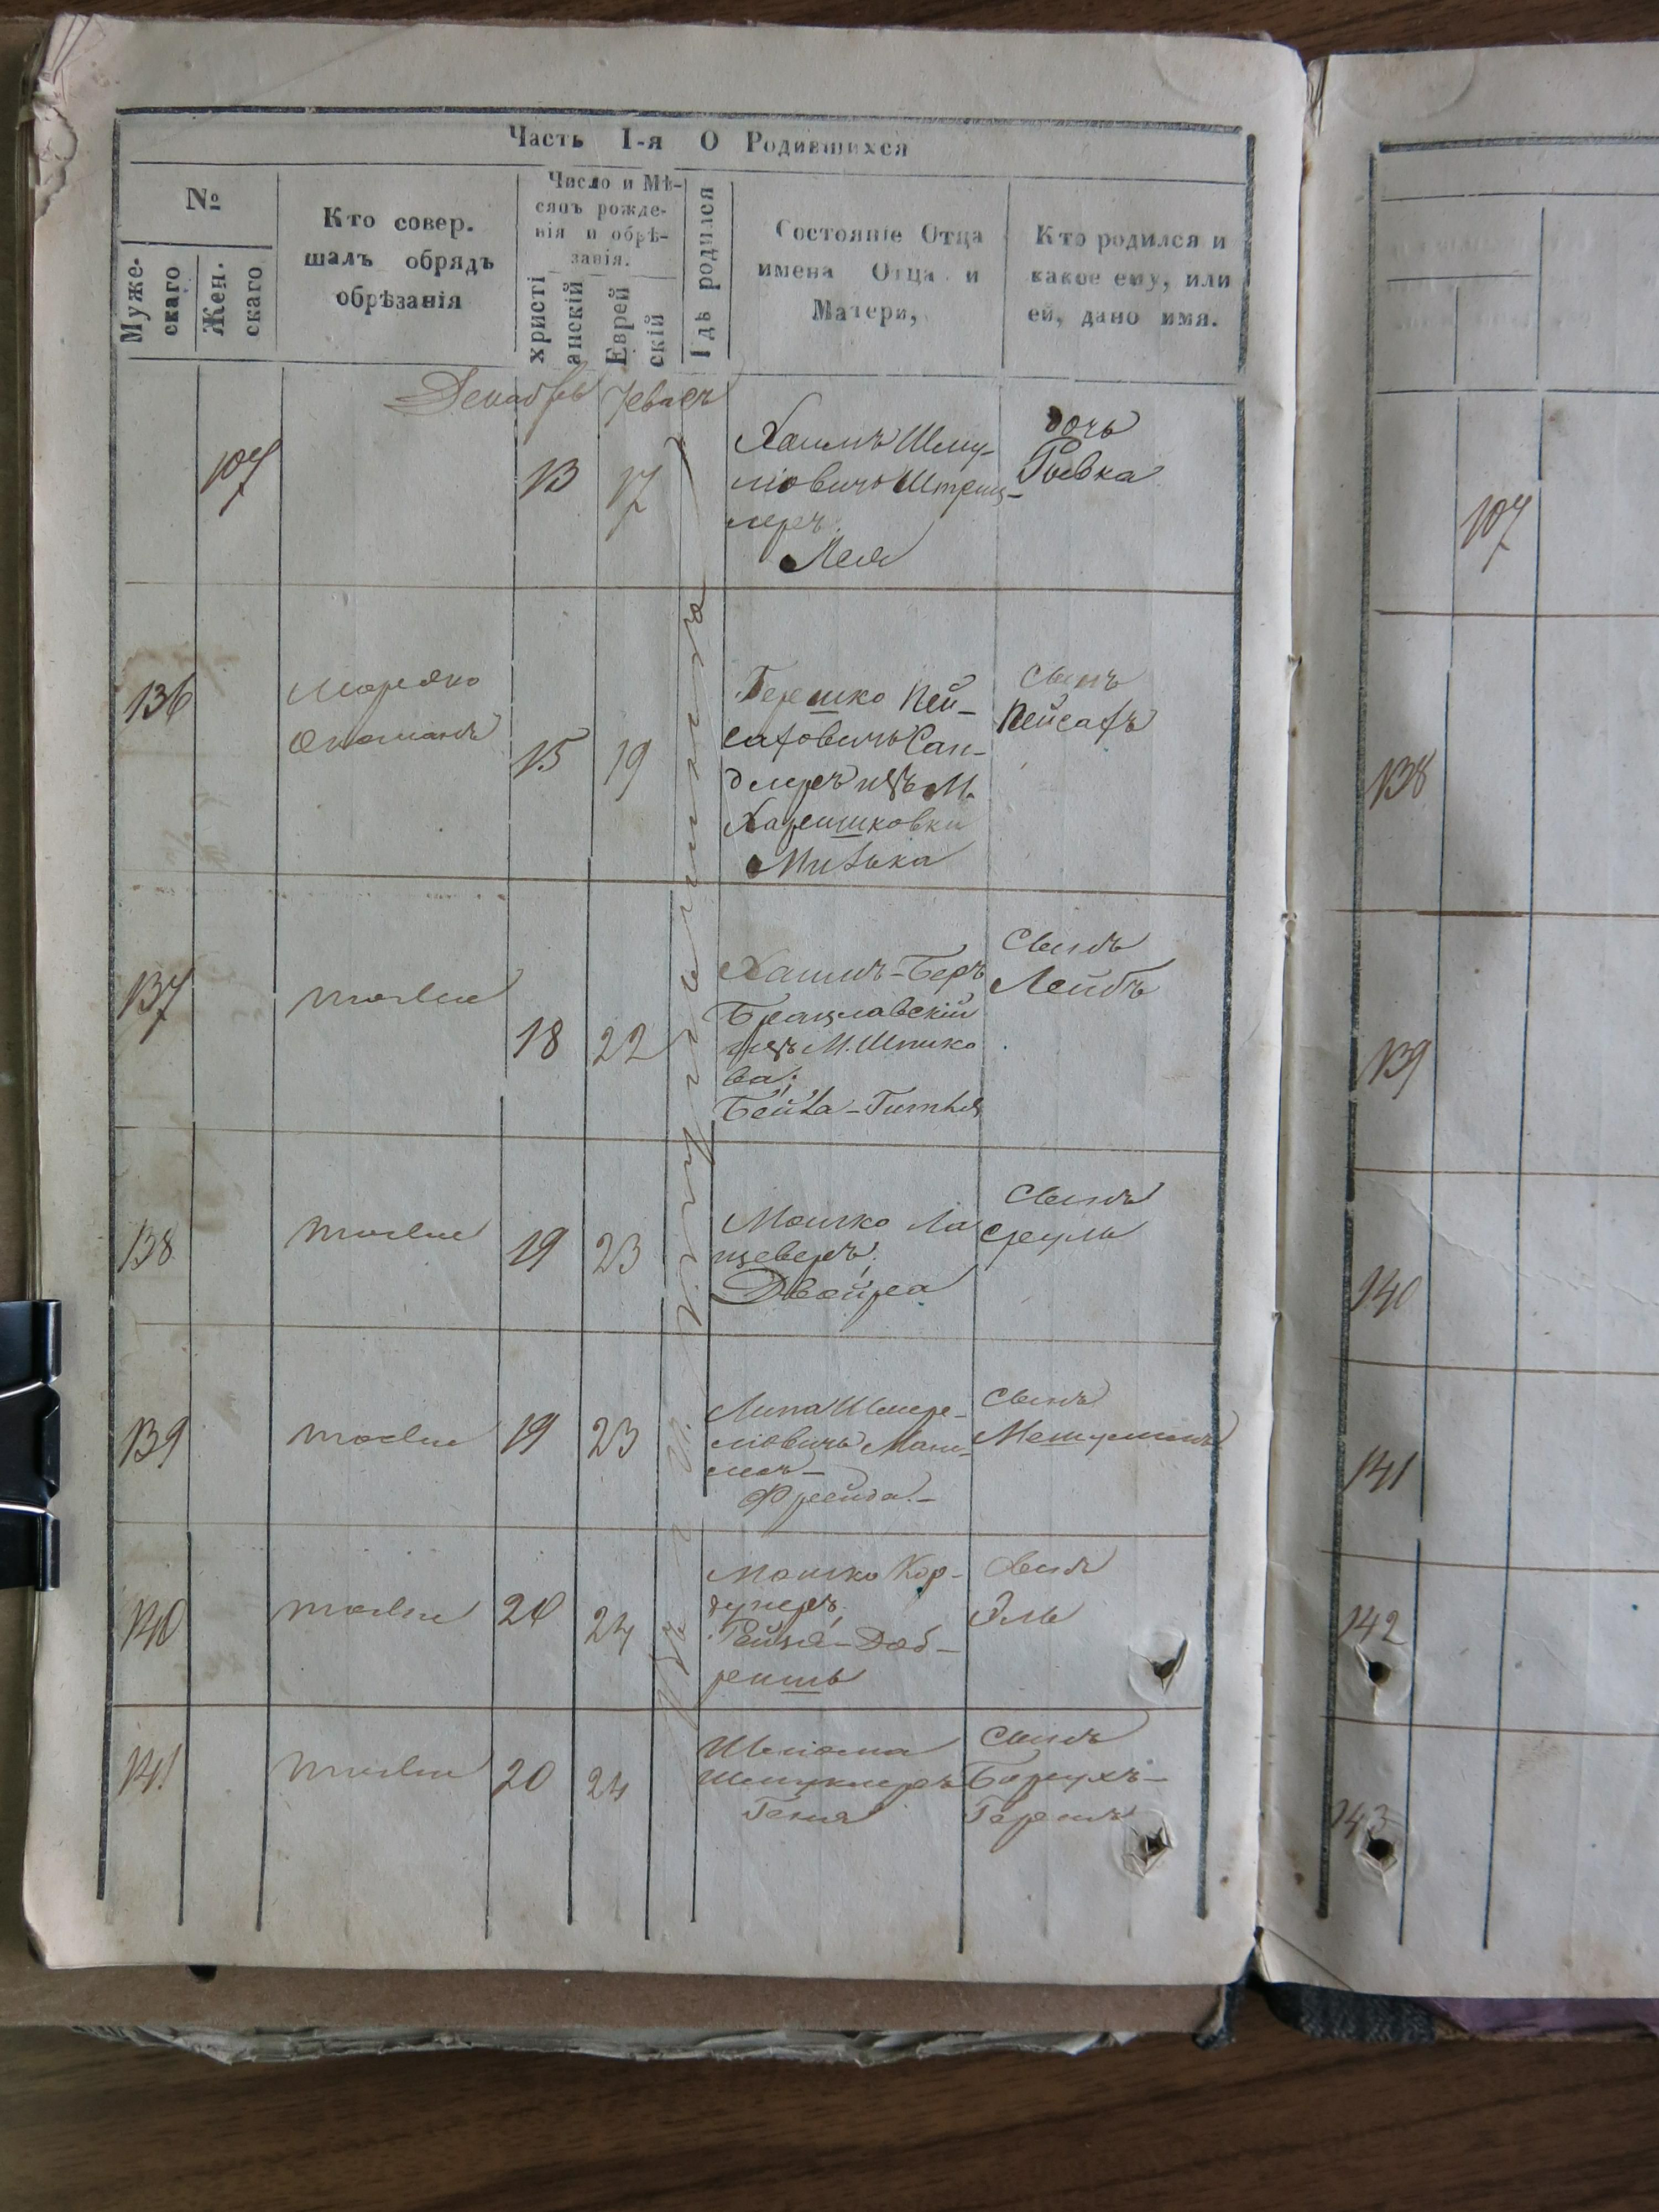 Часть I-я О Родившихся
№
Муже-
скаго
Жен.
скаго
Кто совер.
шалъ обрядъ
обрѣзанія
Число и Мѣ-
сяцъ рожде-
нія и обрѣ-
занія.
христі
анскій
Еврей
скій
Гдѣ родился
Состояніе Отца
имена Отца и
Матери,
Кто родился и
какое ему, или
ей, дано имя.
Декабрь Тевесъ
107
13
17
Хаимъ Шму-
левичъ
леръ
Лея
дочь
Ривка
136
Мордко
15
19
Гершко Пей-
саховичъ Сан-
длеръ изъ М.
Мизька
сынъ
Пейсахъ
137
тоже
18
22
Хаимъ-Беръ
Брацлавскій
изъ М. Шпико
ва;
Бейла-Гитля
сынъ
Лейбъ
138
тоже
19
23
Мошко Ла
щеверъ;
Двойра
сынъ
Сруль
139
тоже
19
23
Липа Шмере-
левичъ
Фрейда.-
сынъ
140
тоже
20
24
Мошко Кор-
дунеръ;
Рейзя-Доб-
ришь
сынъ
Эль
141
тоже
20
24
Шлиома
Геня
сынъ
Борухъ-
Гершъ
107
138
139
140
141
142
143